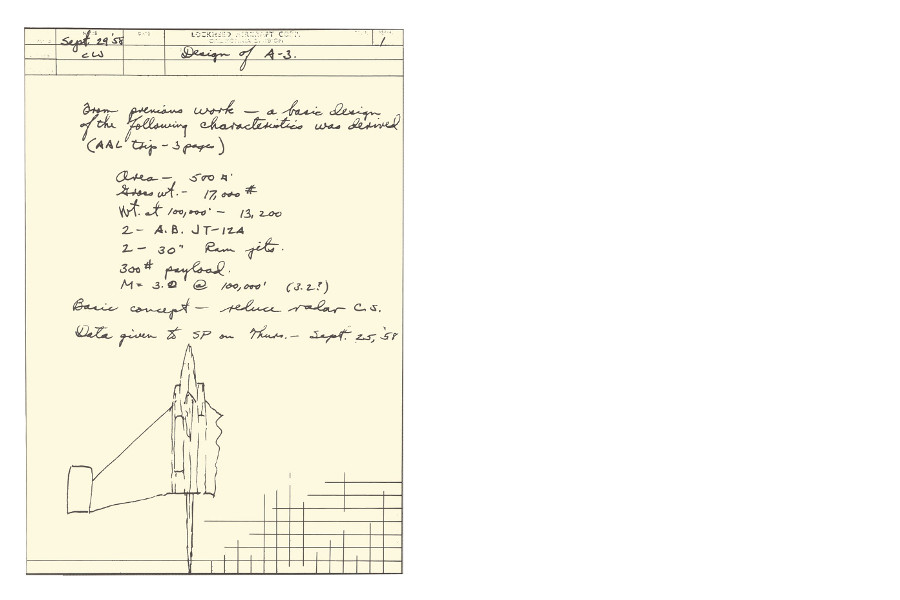 Sept. 29 '58
LOCKHEED AIRCRAFT CORP.
CALIFORNIA DIVISION
1
CLJ
Design of A-3.
From previous work – a basic design
of the following characteristics was derived
(AAL trip – 3 pages)
Area – 500 #'
Gross wt. – 17,000 #
Wt. at 100,000' – 13,200
2 – A.B. JT-12A
2 – 30" Ram jets.
300 # payload.
M = 3.0 @ 100,000' (3.2?)
Basic concept – reduce radar C.S.
Data given to SP on Thurs. – Sept. 25, '58